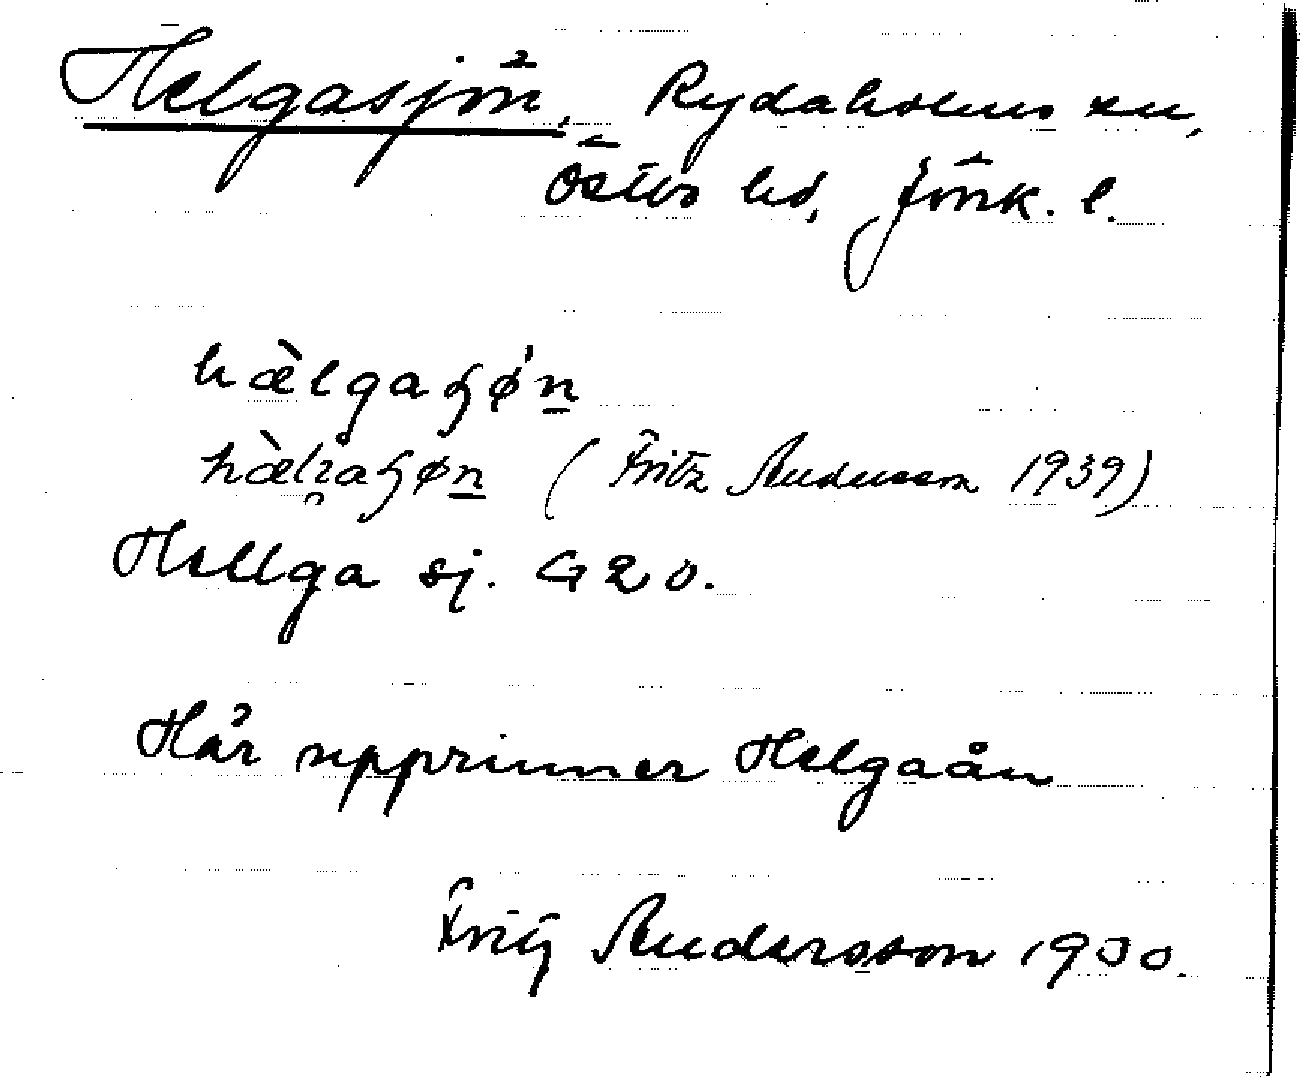 Helgasjön, Rydaholms sn,
Östbo hd, Jönk. l.
hæ̀lgaʃǿn̲
(Fritz Andersson 1939)
Hellga sj. G 20.
Här upprinner Helgaån
Fritz Andersson 1930.